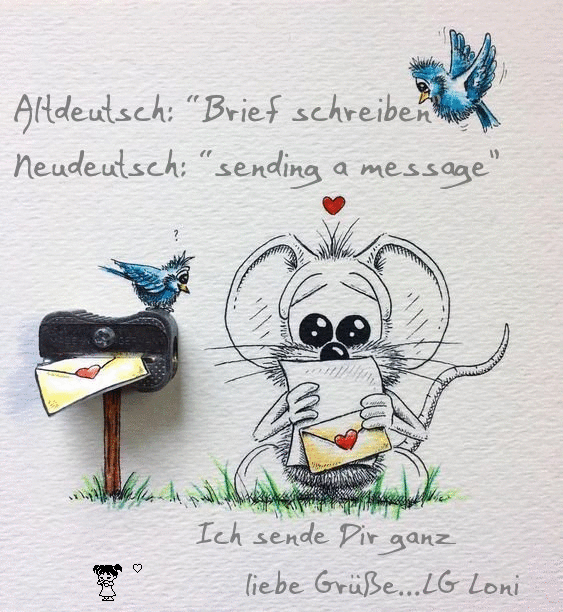 Altdeutsch: "Brief schreiben
Neudeutsch: "sending a message"
?
Ich sende Dir ganz
liebe Grüße...LG Loni